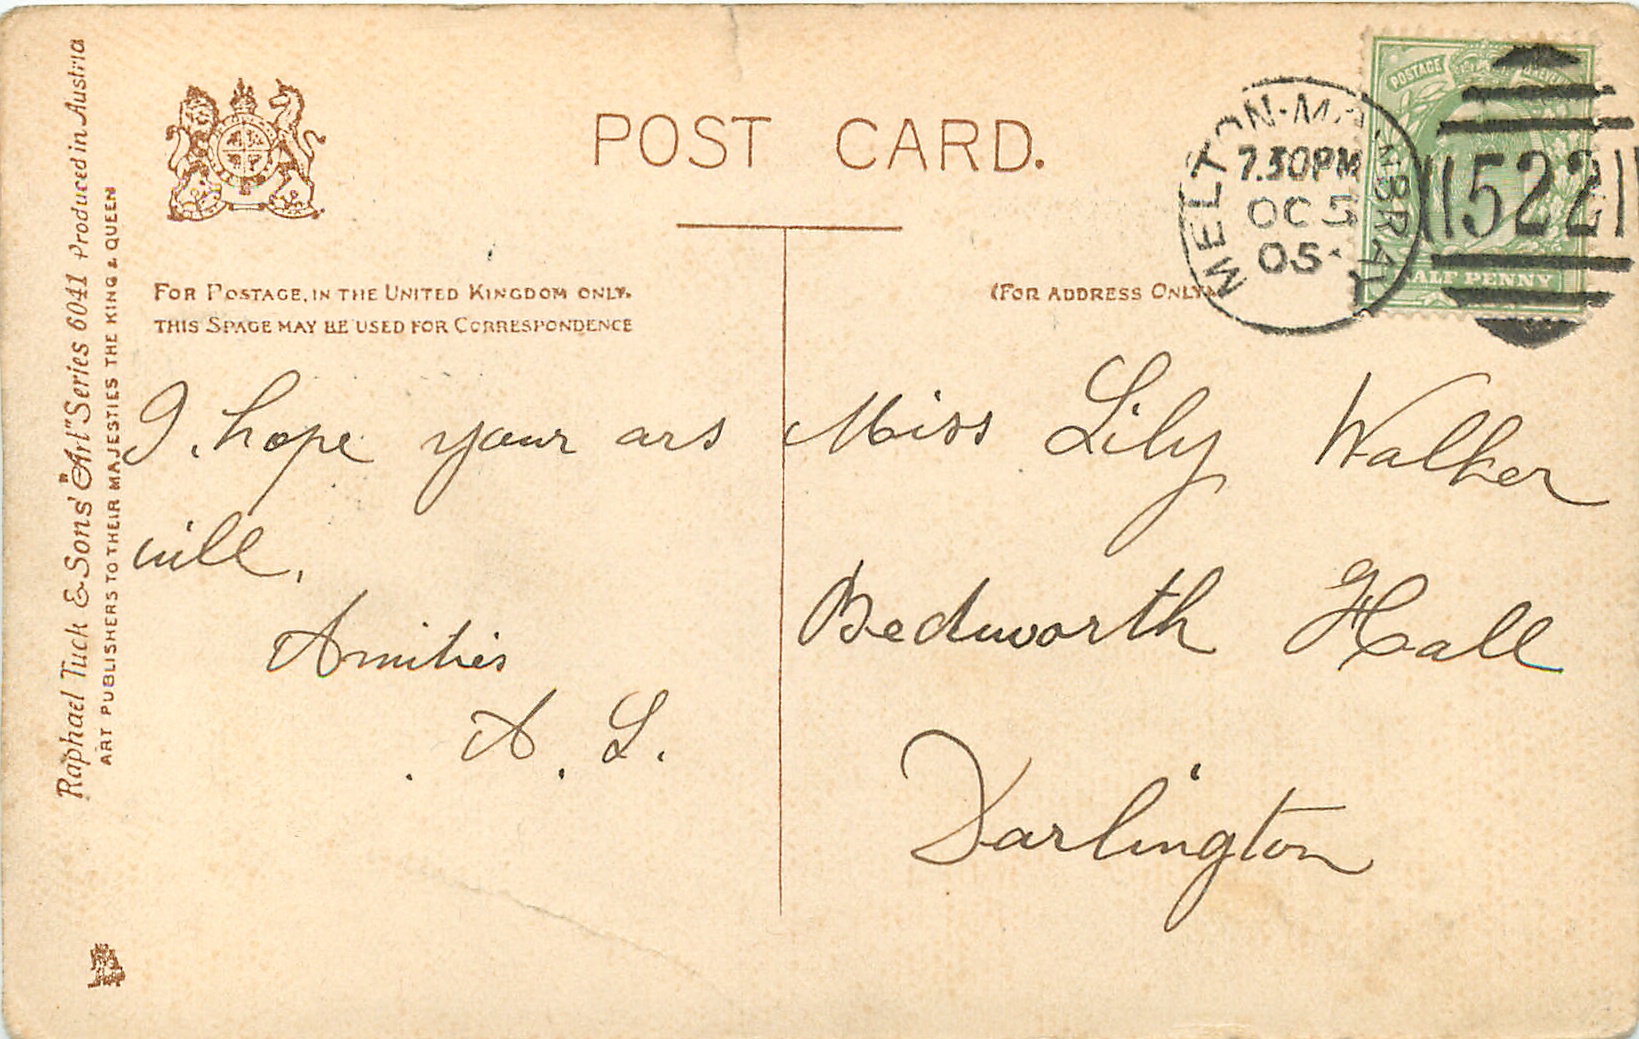 POST CARD.
FOR POSTAGE, IN THE UNITED KINGDOM ONLY.
THIS SPACE MAY BE USED FOR CORRESPONDENCE
(FOR ADDRESS ONLY
MELTON-MOWBRAY
7.30PM
OC 5
05
522
POSTAGE
HALF PENNY
I hope your ars
will.
Amitiés
A. L.
Miss Lily Walker
Bedworth Hall
Darlington
Raphael Tuck & Sons' "Art" Series 6041 Produced in Austria
ART PUBLISHERS TO THEIR MAJESTIES THE KING & QUEEN